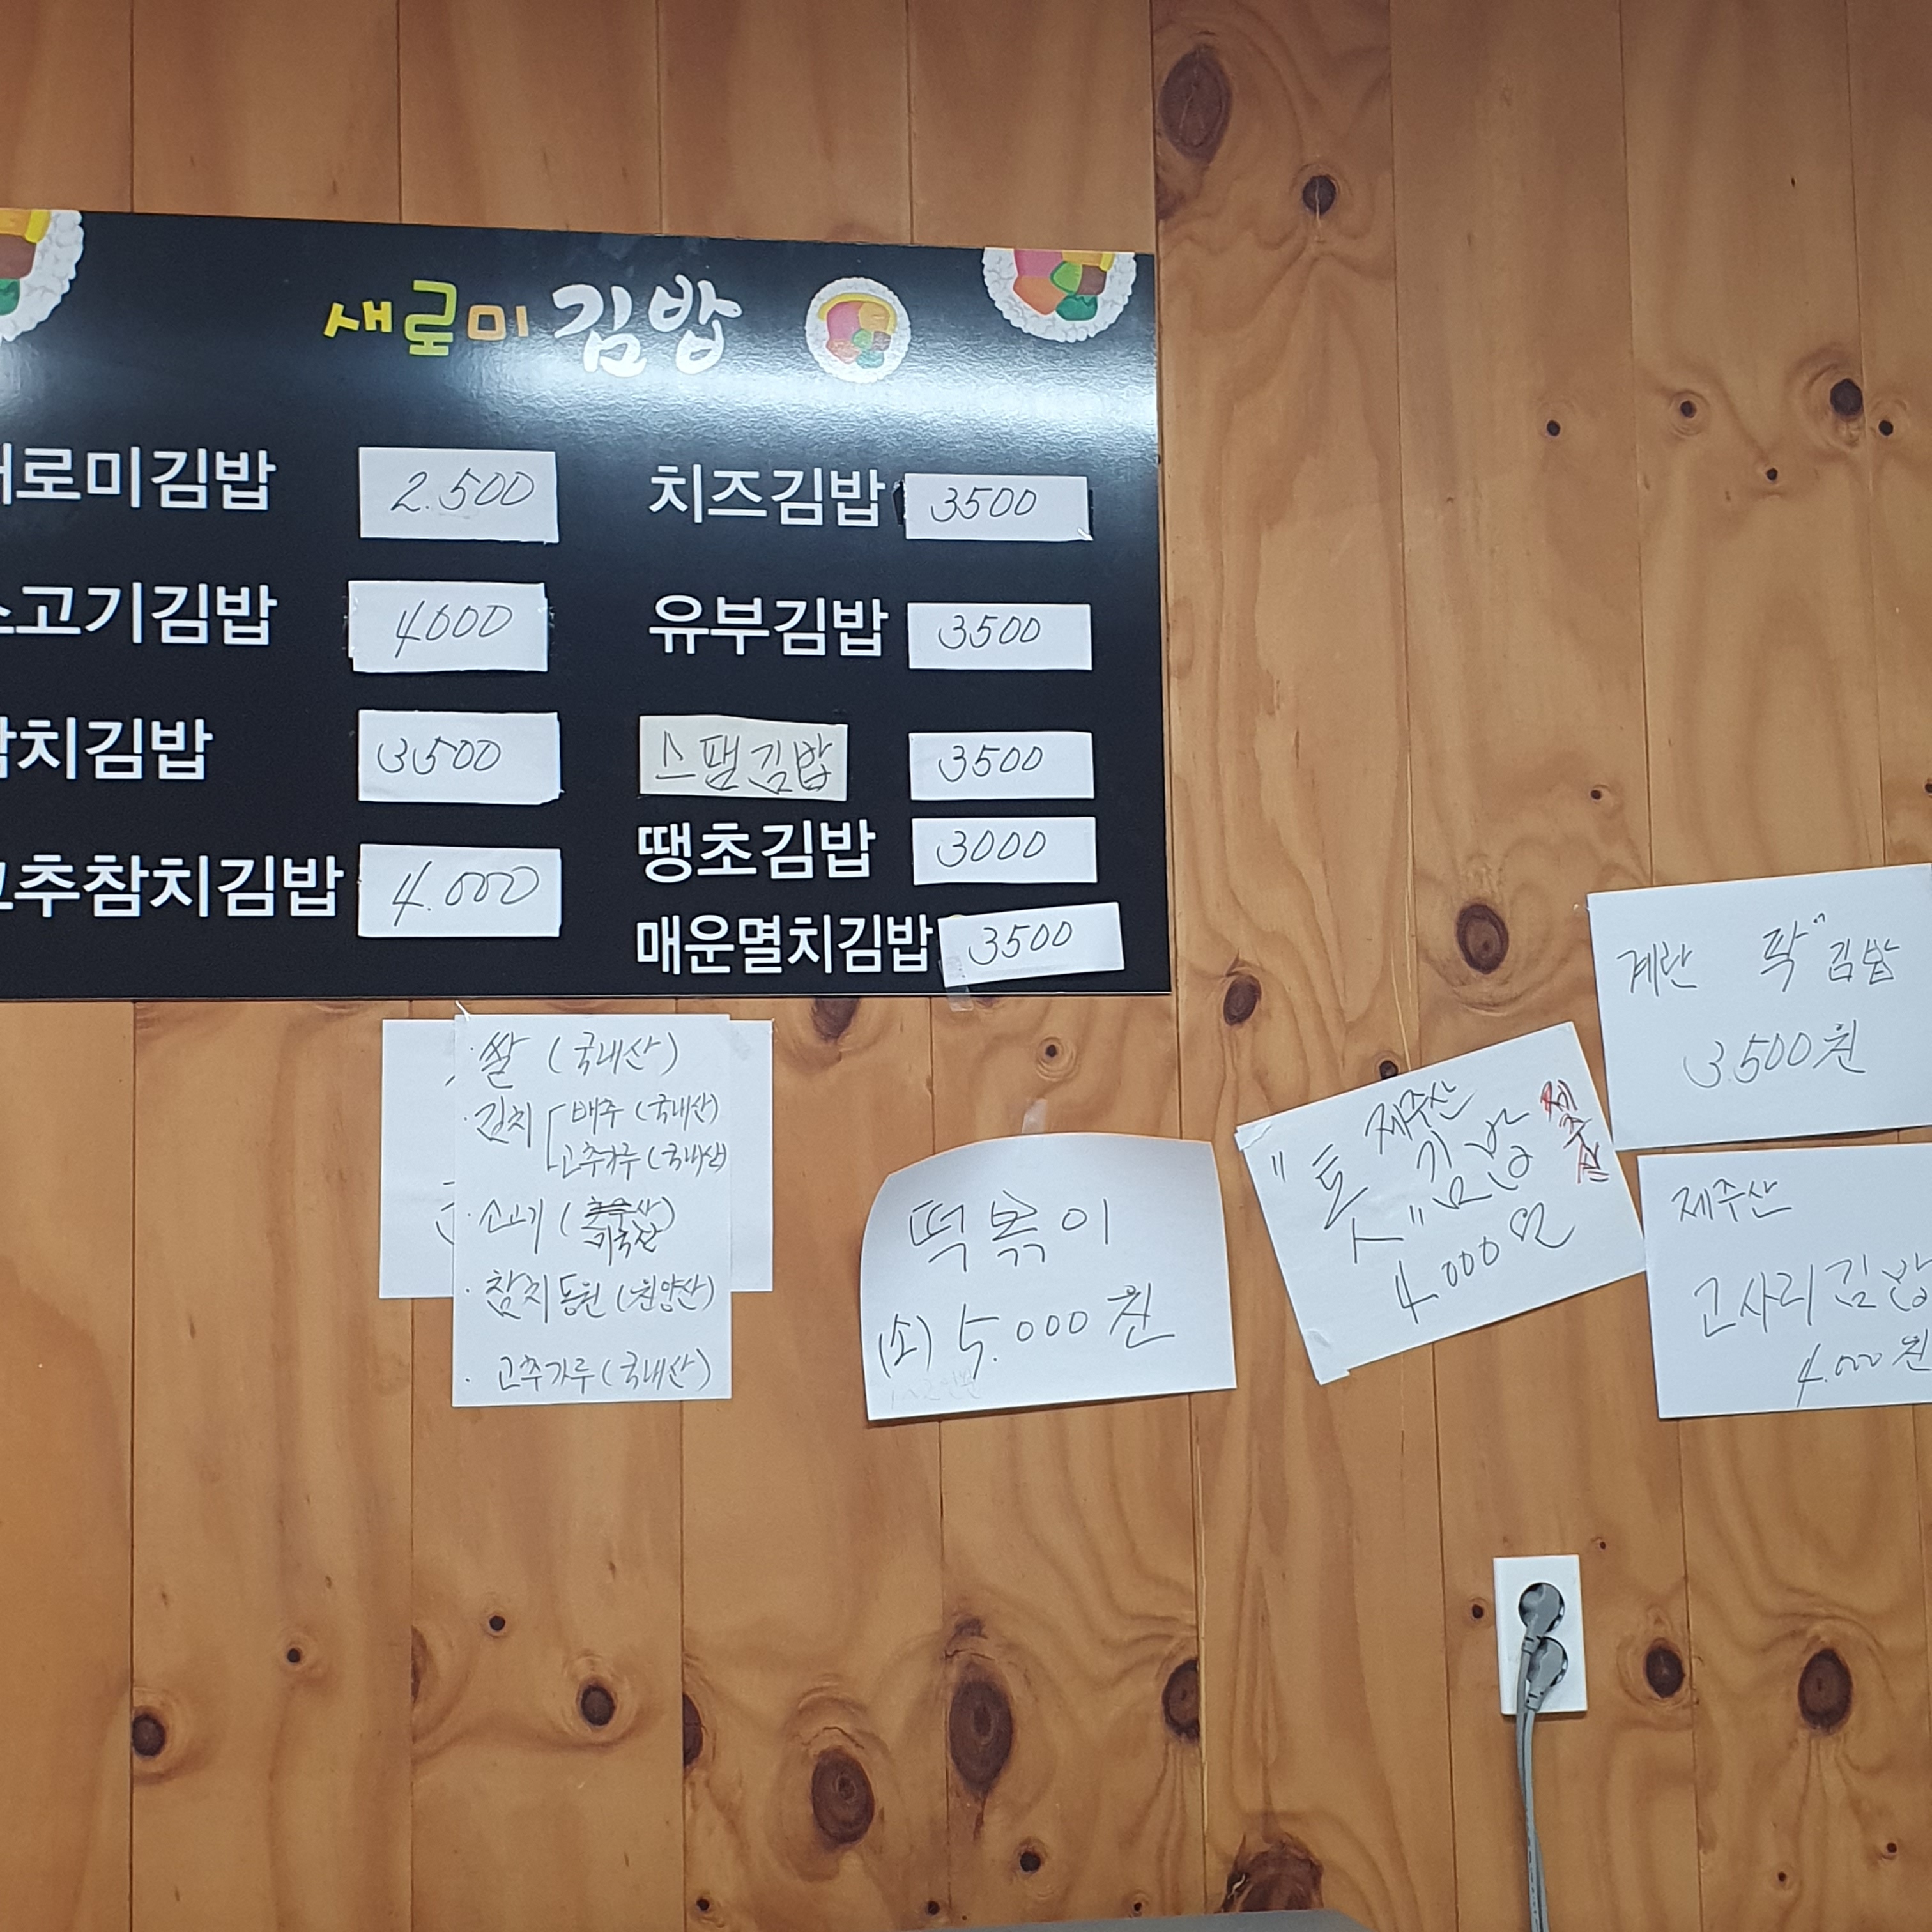 새로미 김밥
로미김밥 2.500
고기김밥 4000
치김밥 3500
추참치김밥 4.000
치즈김밥 3500
유부김밥 3500
스팸김밥 3500
땡초김밥 3000
매운멸치김밥 3500
· 쌀 (국내산)
· 김치 배추 (국내산)
고추가루 (국내산)
· 소고기 (
· 참치 동원 (원양산)
· 고추가루 (국내산)
떡볶이
(소) 5.000원
제주산
"톳" 김밥
4.000원
계란 팍" 김밥
3.500원
제주산
고사리김밥
4.000원